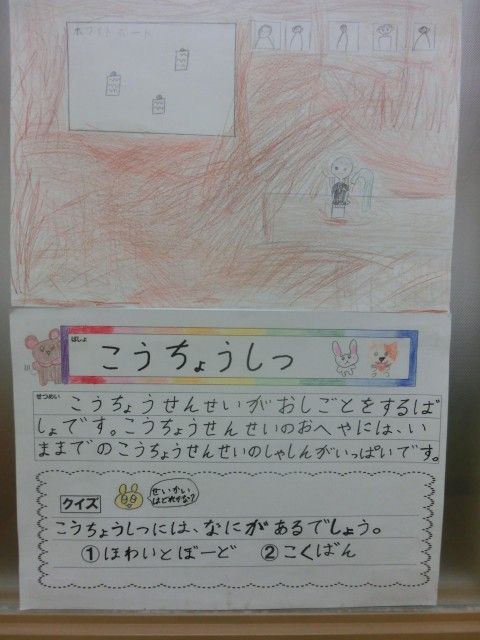 ホワイトボード
ばしょ
こうちょうしつ
せつめい
こうちょうせんせいがおしごとをするば
しょです。こうちょうせんせいのおへやには、い
ままでのこうちょうせんせいのしゃしんがいっぱいです。
クイズ
せいかい
はどれかな?
こうちょうしつには、なにがあるでしょう。
①ほわいとぼーど ②こくばん